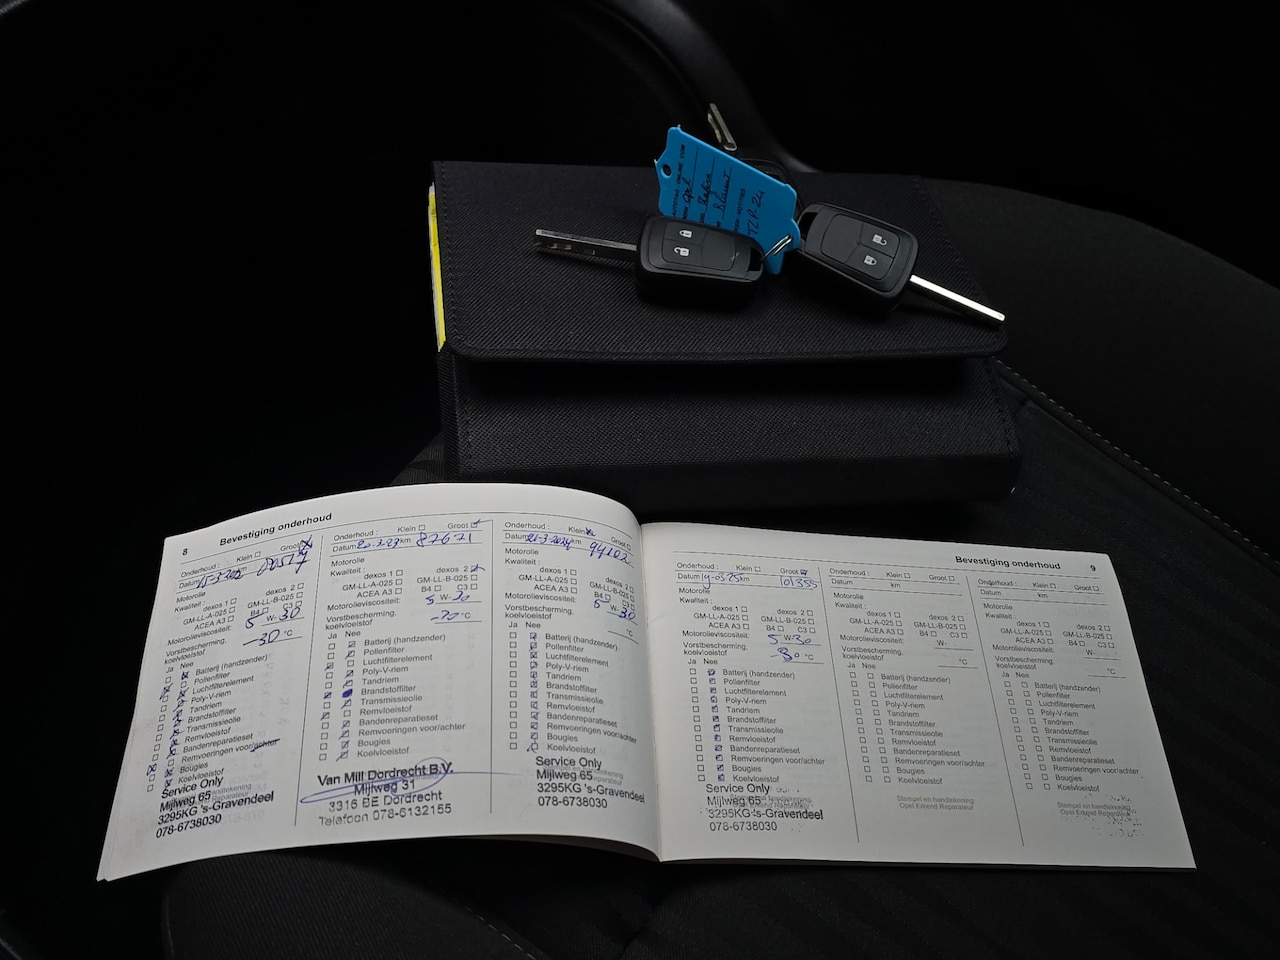 AUTOTAG ONLINE.COM
Opel
Zafira
Blauw
TZP-24
8
Bevestiging onderhoud
Onderhoud : Klein Groot
Datum 15-3-202 km
Motorolie
Kwaliteit : dexos 1 dexos 2
GM-LL-A-025 GM-LL-B-025
ACEA A3 B4 C3
Motorolieviscositeit: 5 W- 30
Vorstbescherming.
koelvloeistof -30 °C
Ja Nee
Batterij (handzender)
Pollenfilter
Luchtfilterelement
Poly-V-riem
Tandriem
Brandstoffilter
Transmissieolie
Remvloeistof
Bandenreparatieset
Remvoeringen voor/achter
Bougies
Koelvloeistof
Service Only
Mijlweg 65
3295KG 's-Gravendeel
078-6738030
Onderhoud : Klein Groot
Datum 20-3-23 km 87671
Motorolie
Kwaliteit : dexos 1 dexos 2
GM-LL-A-025 GM-LL-B-025
ACEA A3 B4 C3
Motorolieviscositeit: 5 W- 30
Vorstbescherming.
koelvloeistof °C
Ja Nee
Batterij (handzender)
Pollenfilter
Luchtfilterelement
Poly-V-riem
Tandriem
Brandstoffilter
Transmissieolie
Remvloeistof
Bandenreparatieset
Remvoeringen voor/achter
Bougies
Koelvloeistof
Van Mill Dordrecht B.V.
Mijlweg 31
3316 BE Dordrecht
Telefoon 078-6132155
Onderhoud : Klein Groot
Datum 21-3-2024 km 94102
Motorolie
Kwaliteit : dexos 1 dexos 2
GM-LL-A-025 GM-LL-B-025
ACEA A3 B4 C3
Motorolieviscositeit: 5 W- 30
Vorstbescherming.
koelvloeistof °C
Ja Nee
Batterij (handzender)
Pollenfilter
Luchtfilterelement
Poly-V-riem
Tandriem
Brandstoffilter
Transmissieolie
Remvloeistof
Bandenreparatieset
Remvoeringen voor/achter
Bougies
Koelvloeistof
Service Only
Mijlweg 65
3295KG 's-Gravendeel
078-6738030
Bevestiging onderhoud
9
Onderhoud : Klein Groot
Datum km 101355
Motorolie
Kwaliteit : dexos 1 dexos 2
GM-LL-A-025 GM-LL-B-025
ACEA A3 B4 C3
Motorolieviscositeit: 5 W- 30
Vorstbescherming.
koelvloeistof -30 °C
Ja Nee
Batterij (handzender)
Pollenfilter
Luchtfilterelement
Poly-V-riem
Tandriem
Brandstoffilter
Transmissieolie
Remvloeistof
Bandenreparatieset
Remvoeringen voor/achter
Bougies
Koelvloeistof
Service Only
Mijlweg 65
3295KG 's-Gravendeel
078-6738030
Onderhoud : Klein Groot
Datum km
Motorolie
Kwaliteit : dexos 1 dexos 2
GM-LL-A-025 GM-LL-B-025
ACEA A3 B4 C3
Motorolieviscositeit: W-
Vorstbescherming.
koelvloeistof °C
Ja Nee
Batterij (handzender)
Pollenfilter
Luchtfilterelement
Poly-V-riem
Tandriem
Brandstoffilter
Transmissieolie
Remvloeistof
Bandenreparatieset
Remvoeringen voor/achter
Bougies
Koelvloeistof
Stempel en handtekening
Opel Erkend Reparateur
Onderhoud : Klein Groot
Datum km
Motorolie
Kwaliteit : dexos 1 dexos 2
GM-LL-A-025 GM-LL-B-025
ACEA A3 B4 C3
Motorolieviscositeit: W-
Vorstbescherming.
koelvloeistof °C
Ja Nee
Batterij (handzender)
Pollenfilter
Luchtfilterelement
Poly-V-riem
Tandriem
Brandstoffilter
Transmissieolie
Remvloeistof
Bandenreparatieset
Remvoeringen voor/achter
Bougies
Koelvloeistof
Stempel en handtekening
Opel Erkend Reparateur